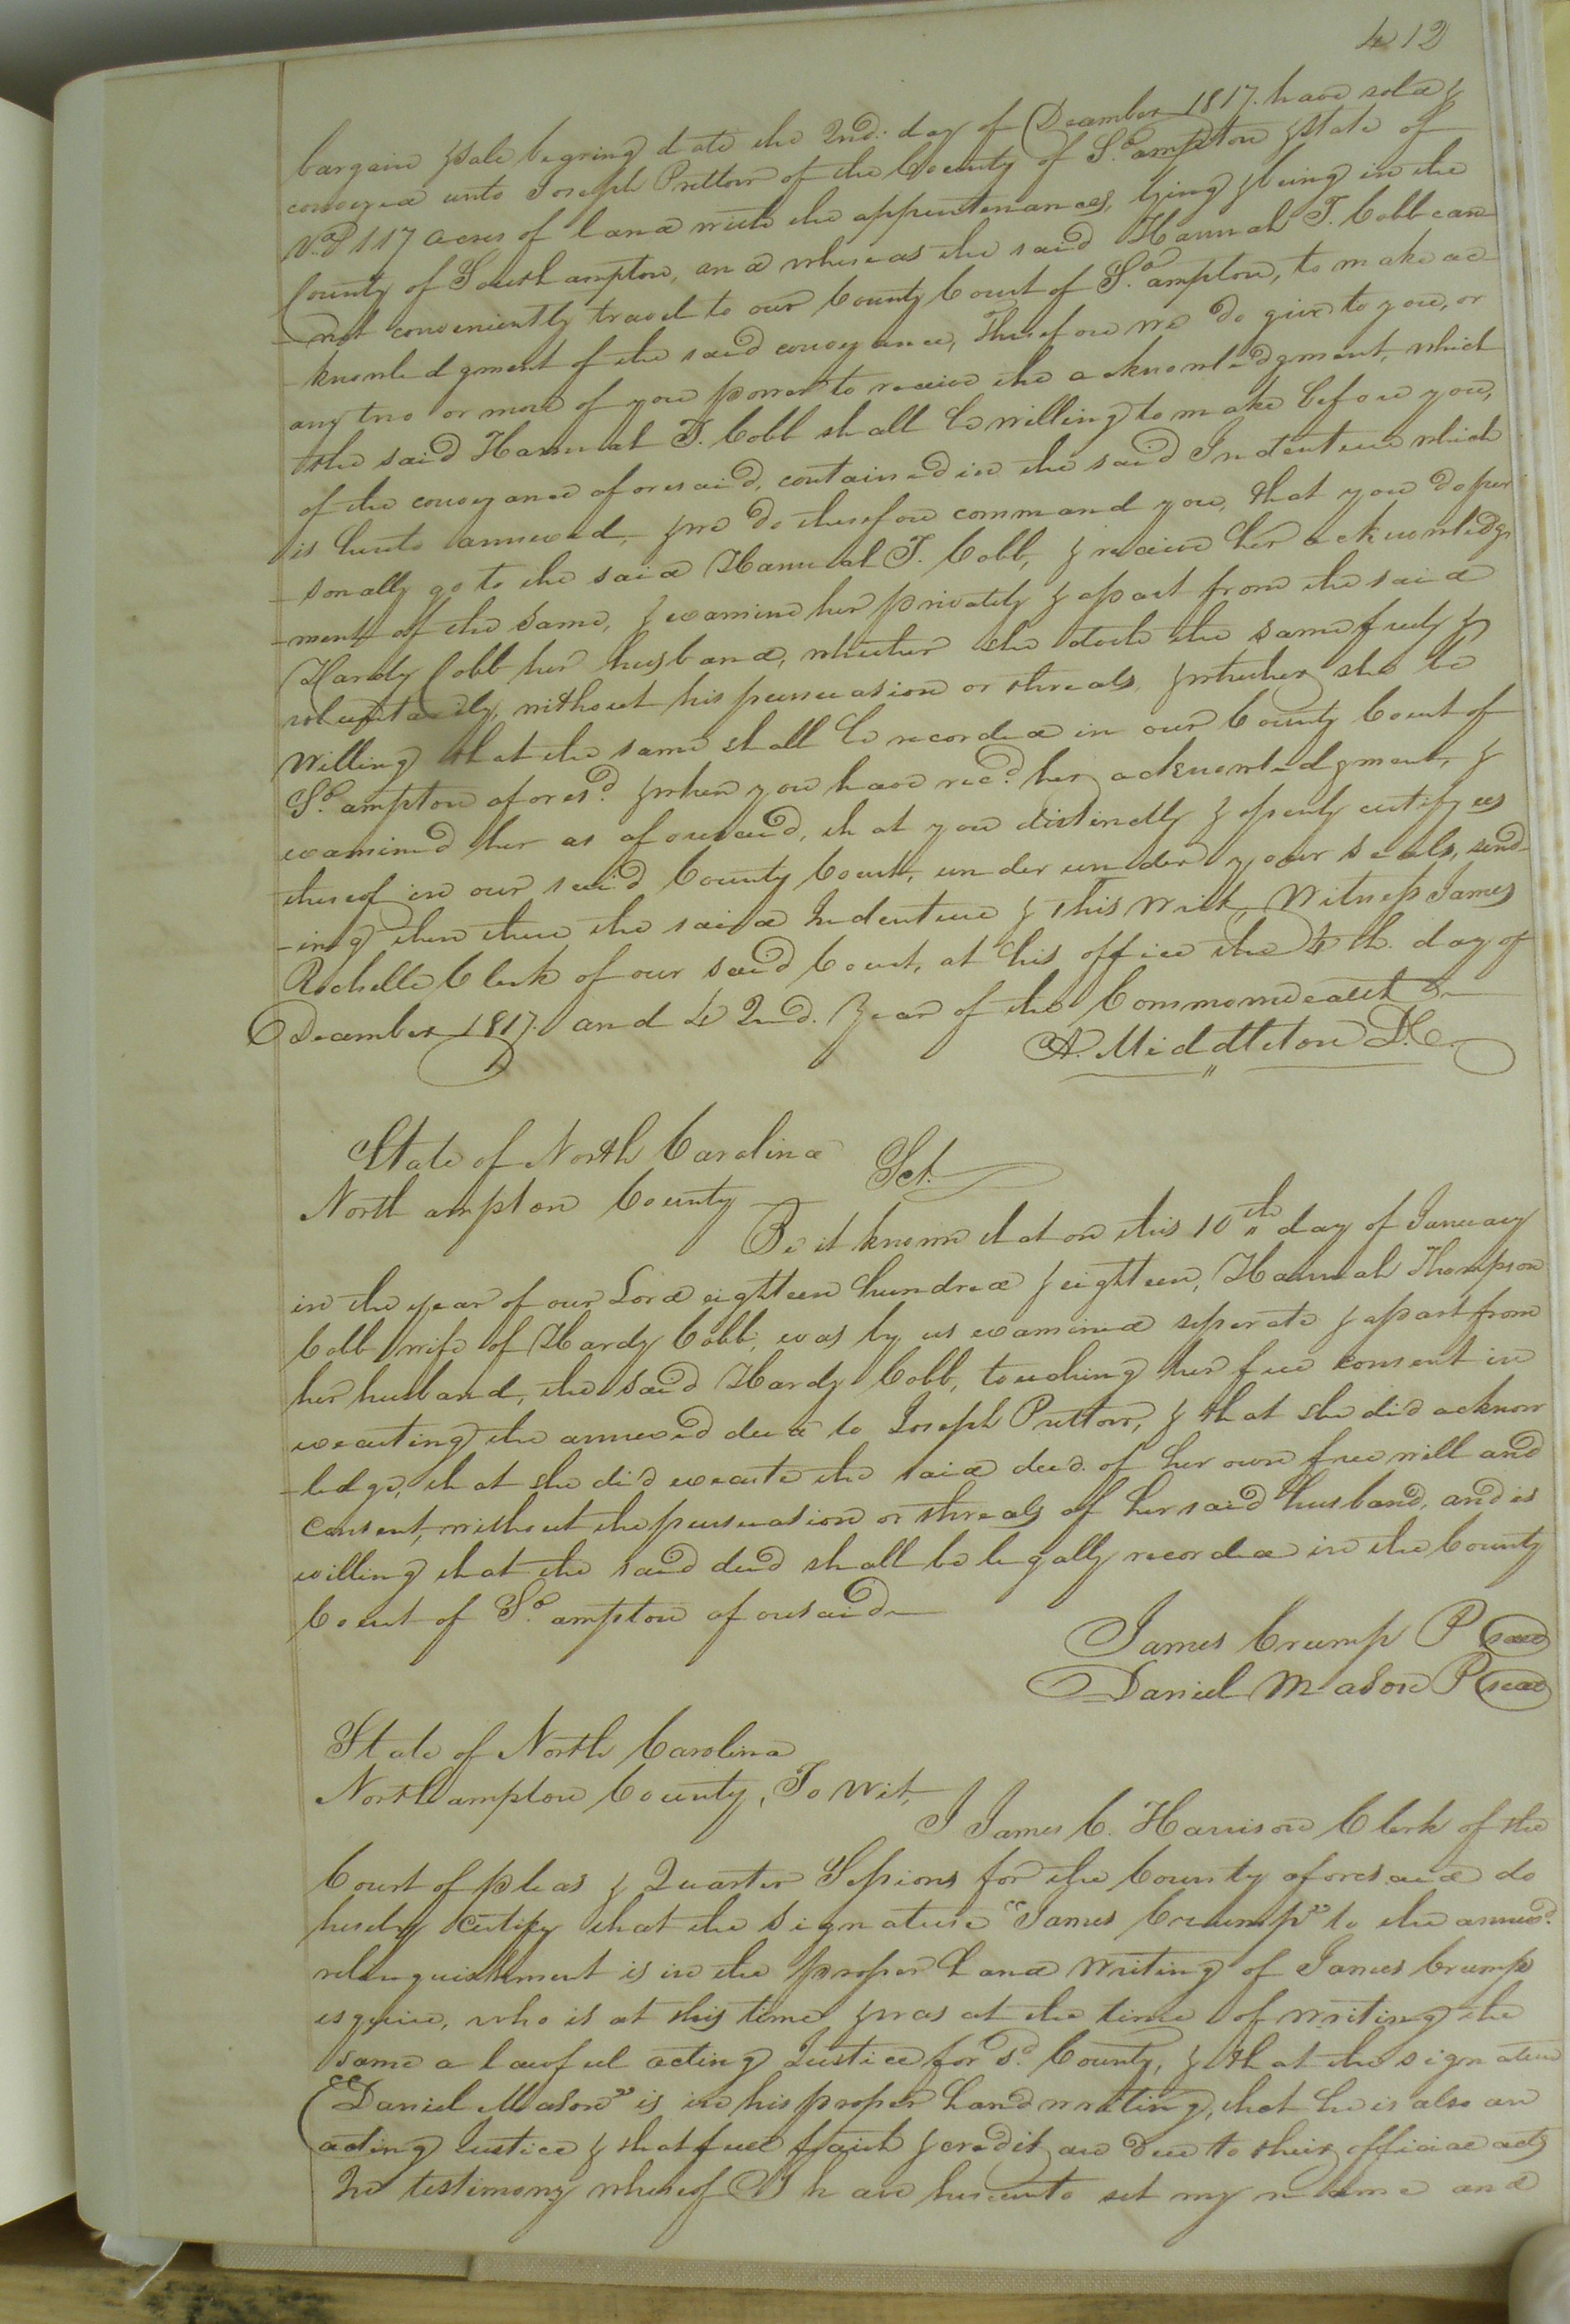 412
bargain & sale bearing date the 2nd: day of December 1817. have sold &
conveyed unto Joseph Pretlow of the County of So.ampton & state of
Va. 117 acres of land with the appurtenances, lying & being in the
County of Southampton, and whereas the said Hannah T. Cobb can
-not conveniently travel to our County Court of So.ampton, to make ac
-knowledgment of the said conveyance, Therefore we do give to you, or
any two or more of you power to receive the acknowledgment, which
the said Hannah T. Cobb shall be willing to make before you,
of the conveyance aforesaid, contained in the said Indenture which
is hereto annexed, & we do therefore command you, that you do per
-sonally go to the said Hannah T. Cobb, & receive her acknowledg
-ment of the same, & examine her privately & apart from the said
Hardy Cobb her husband, whether she doth the same freely &
voluntarily, without his persuasion or threats, & whether she be
willing that the same shall be recorded in our County Court of
So.ampton aforesd. & when you have recd. her acknowledgment, &
examined her as aforesaid, that you distinctly & openly certify us
thereof in our said County Court, under under your seals, send
-ing then there the said Indenture & this writ, Witness James
Rochelle Clerk of our said Court, at his office the 4th. day of
December 1817. and 42nd. Year of the Commonwealth
A. Middleton D.C.
State of North Carolina
Northampton County Sct.
Be it known that on this 10th day of January
in the year of our Lord eighteen hundred & eighteen, Hannah Thompson
Cobb wife of Hardy Cobb, was by us examined seperate & apart from
her husband, the said Hardy Cobb, touching her free consent in
executing the annexed deed to Joseph Pretlow, & that she did acknow
-ledge, that she did execute the said deed of her own free will and
consent, without the persuasion or threats of her said husband, and is
willing that the said deed shall be legally recorded in the County
Court of So.ampton aforesaid
James Crump P seal
Daniel Mason P seal
State of North Carolina
Northampton County, To wit,
I James C. Harrison Clerk of the
Court of pleas & Quarter Sessions for the County aforesaid do
hereby certify that the signature "James Crump" to the annexd.
relinquishment is in the proper hand writing of James Crump
esquire, who is at this time & was at the time of writing the
same a lawful acting Justice for sd. County, & that the signature
"Daniel Mason" is in his proper handwriting, that he is also an
acting Justice & that full faith & credit are due to their official acts
In testimony whereof I have hereunto set my name and